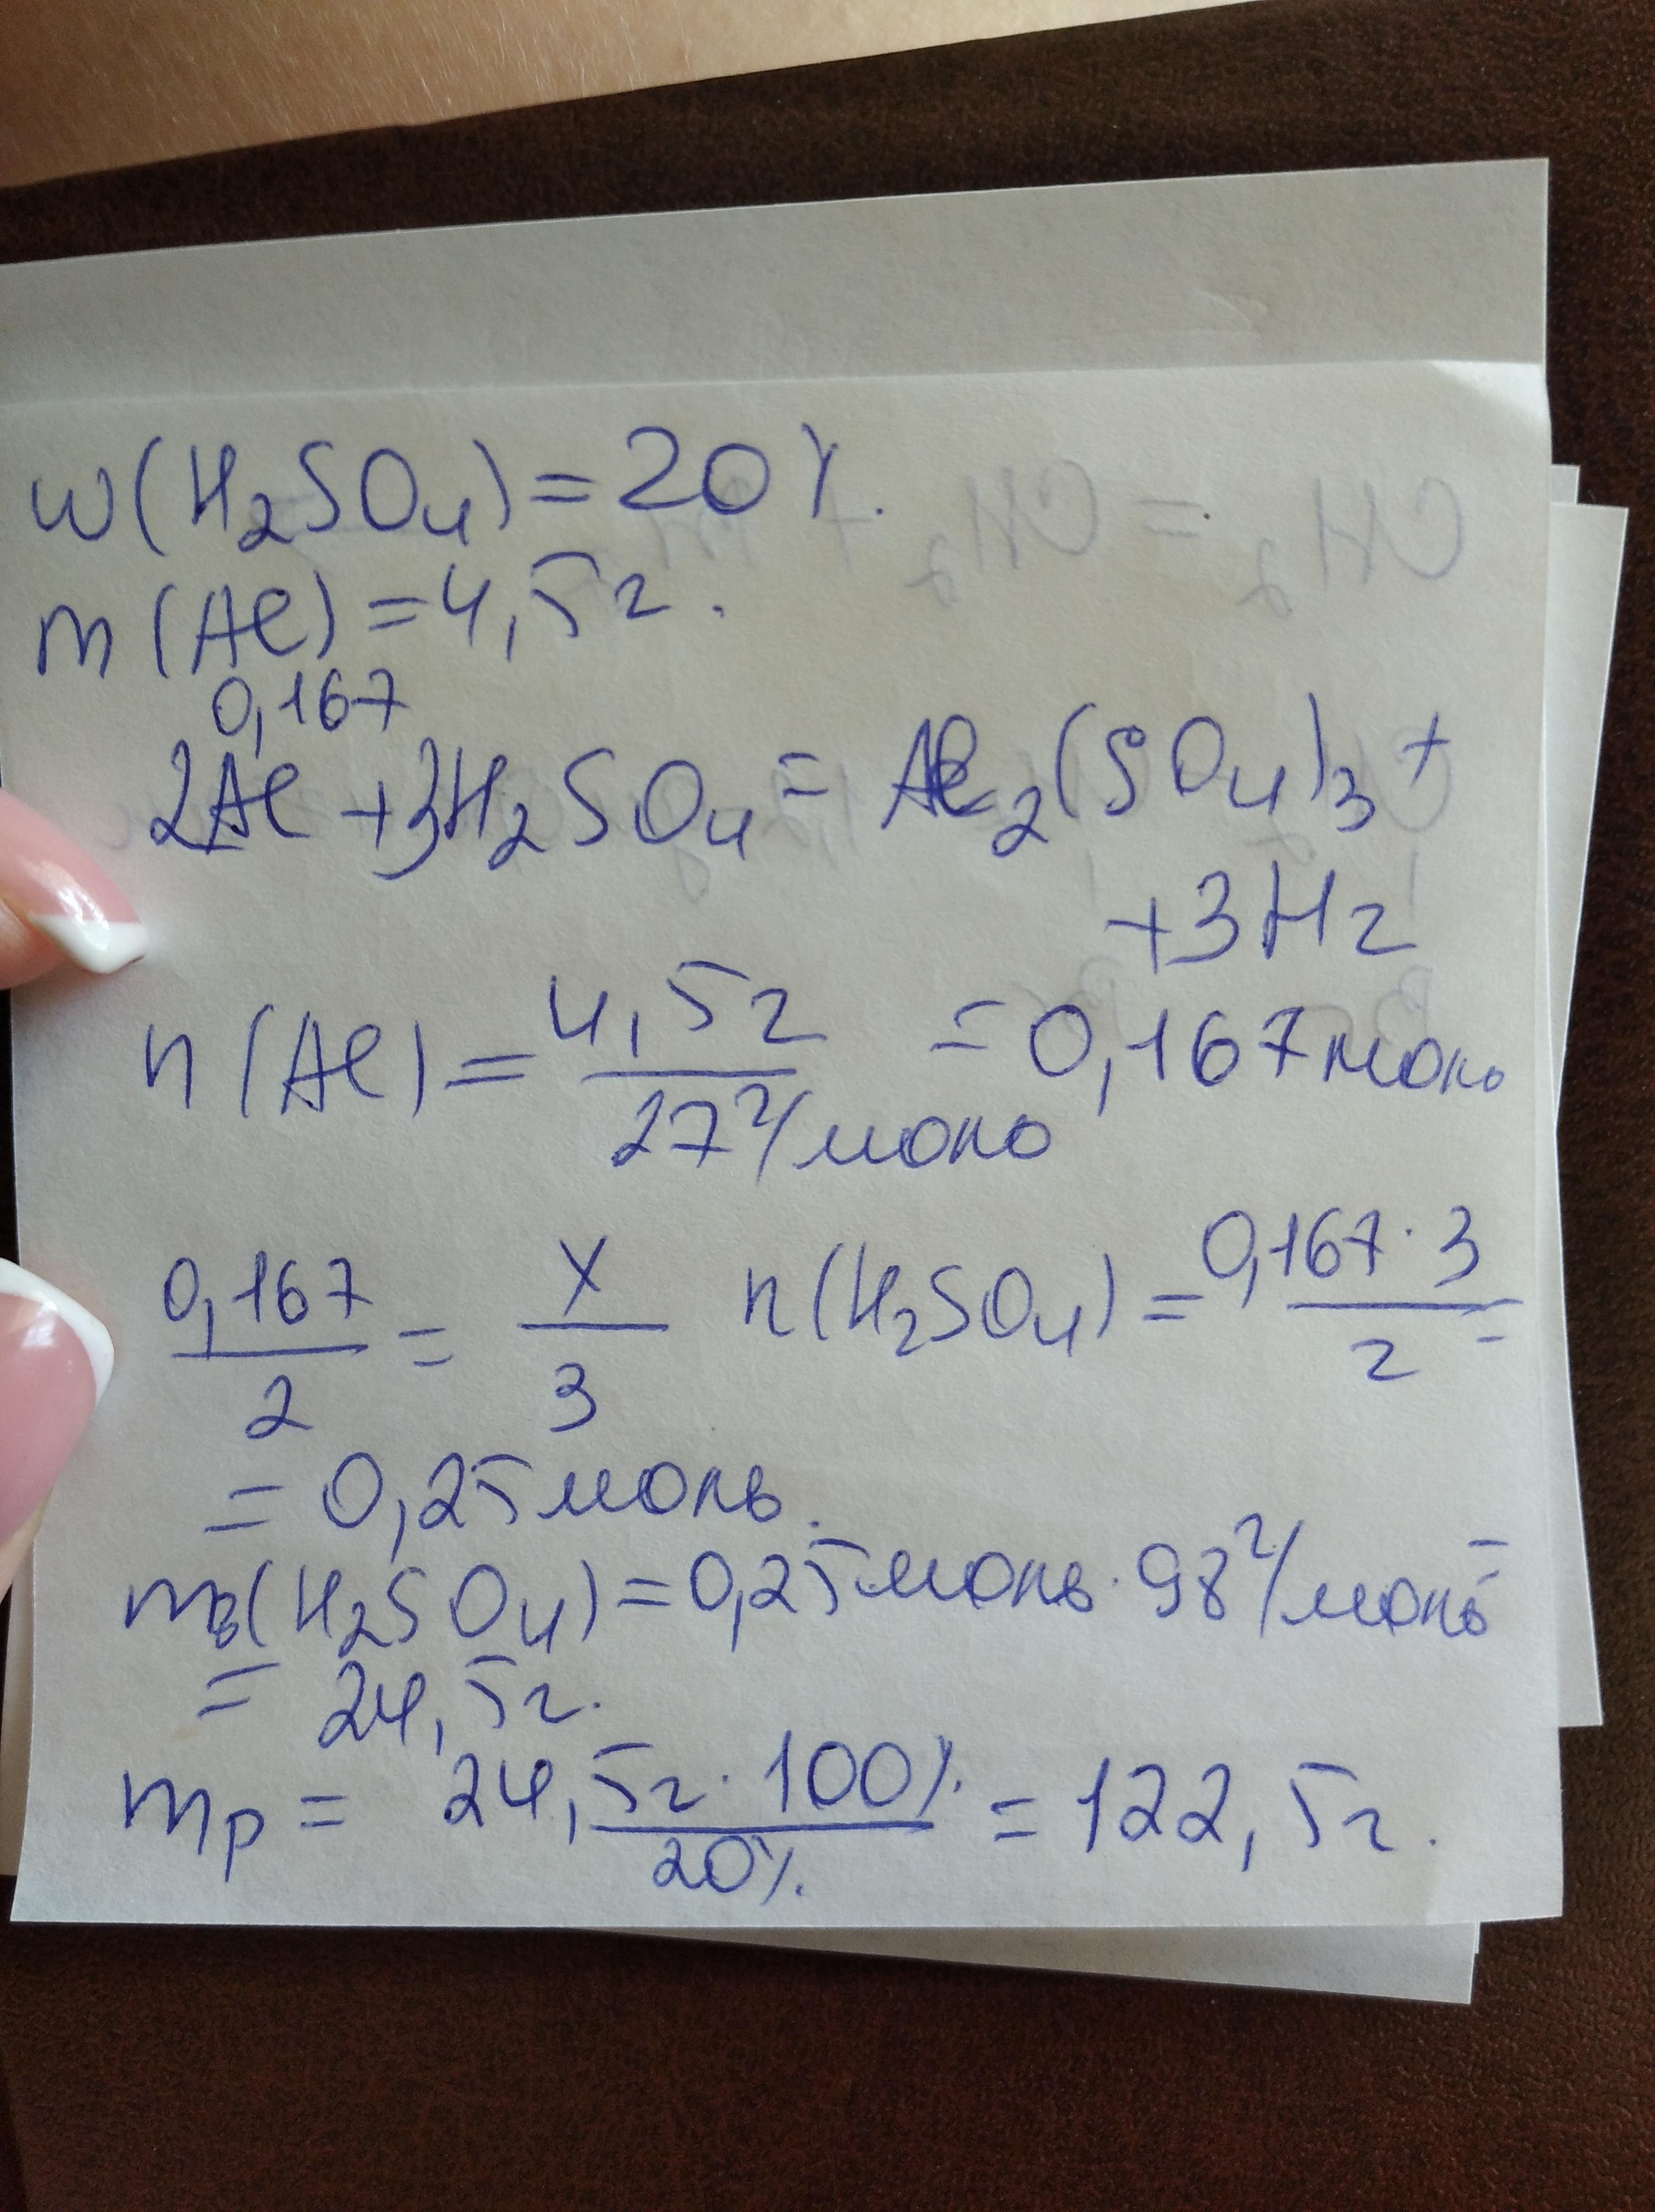 w(H₂SO₄) = 20%.
m(Al) = 4,5г.
0,167
2Al + 3H₂SO₄ = Al₂(SO₄)₃ +
+ 3H₂
n(Al) = 4,5г / 27г/моль = 0,167моль
0,167 / 2 = x / 3 n(H₂SO₄) = 0,167·3 / 2 =
= 0,25моль.
mв(H₂SO₄) = 0,25моль·98г/моль =
= 24,5г.
mр = 24,5г·100% / 20% = 122,5г.